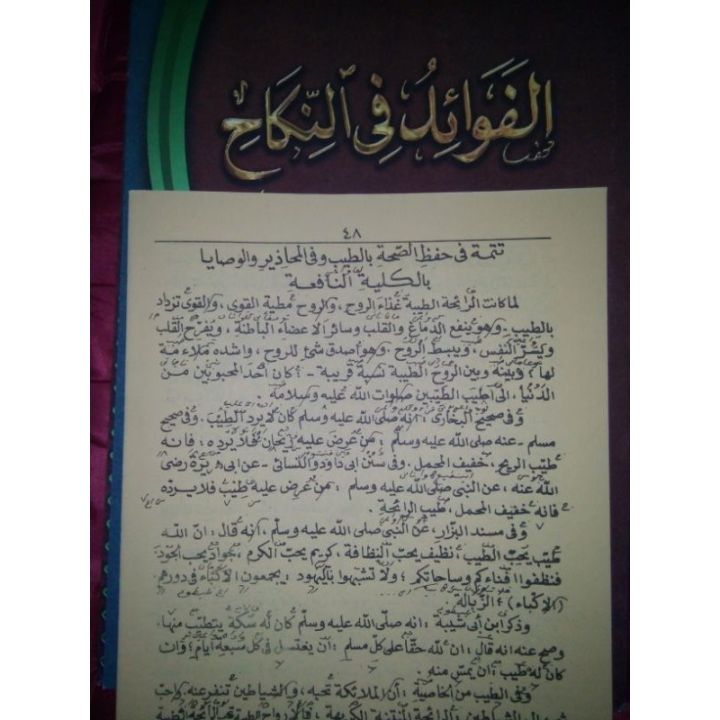 الفَوَائِدُ فِي النِّكَاحِ
٤٨
تتمة فى حفظ الصحة بالطيب وفى المحاذير والوصايا
بالكلية النافعة
لما كانت الرائحة الطيبة غذاء الروح، والروح مطية القوى، والقوى تزداد
بالطيب - وهو ينفع الدماغ والقلب وسائر الاعضاء الباطنة، ويفرح القلب
ويسر النفس، ويبسط الروح - وهو أصدق شئ للروح، واشده ملاءمة
لها؛ وبينه وبين الروح الطيبة نسبة قريبة - : كان أحد المحبوبين من
الدنيا، الى أطيب الطيبين صلوات الله عليه وسلامه.
وفى صحيح البخارى: انه صلى الله عليه وسلم كان لا يرد الطيب. وفى صحيح
مسلم - عنه صلى الله عليه وسلم: من عرض عليه ريحان فلا يرده: فانه
طيب الريح، خفيف المحمل. وفى سنن ابى داود والنسائى - عن ابى هريرة رضى
الله عنه، عن النبى صلى الله عليه وسلم: من عرض عليه طيب فلا يرده
فانه خفيف المحمل، طيب الرائحة.
وفى مسند البزار، عن النبى صلى الله عليه وسلم، انه قال: ان الله
طيب يحب الطيب، نظيف يحب النظافة، كريم يحب الكرم، جواد يحب الجود،
فنظفوا أفناءكم وساحاتكم؛ ولا تشبهوا باليهود: يجمعون الأكباء فى دورهم
(الاكباء): الزبالة
وذكر ابن أبى شيبة: انه صلى الله عليه وسلم كان له سكة يتطيب منها.
وصح عنه انه قال: ان لله حقا على كل مسلم: أن يغتسل فى كل سبعة أيام؛ وان
كان له طيب: ان يمس منه.
وفى الطيب من الخاصية: أن الملائكة تحبه، والشياطين تنفر عنه. وأحب